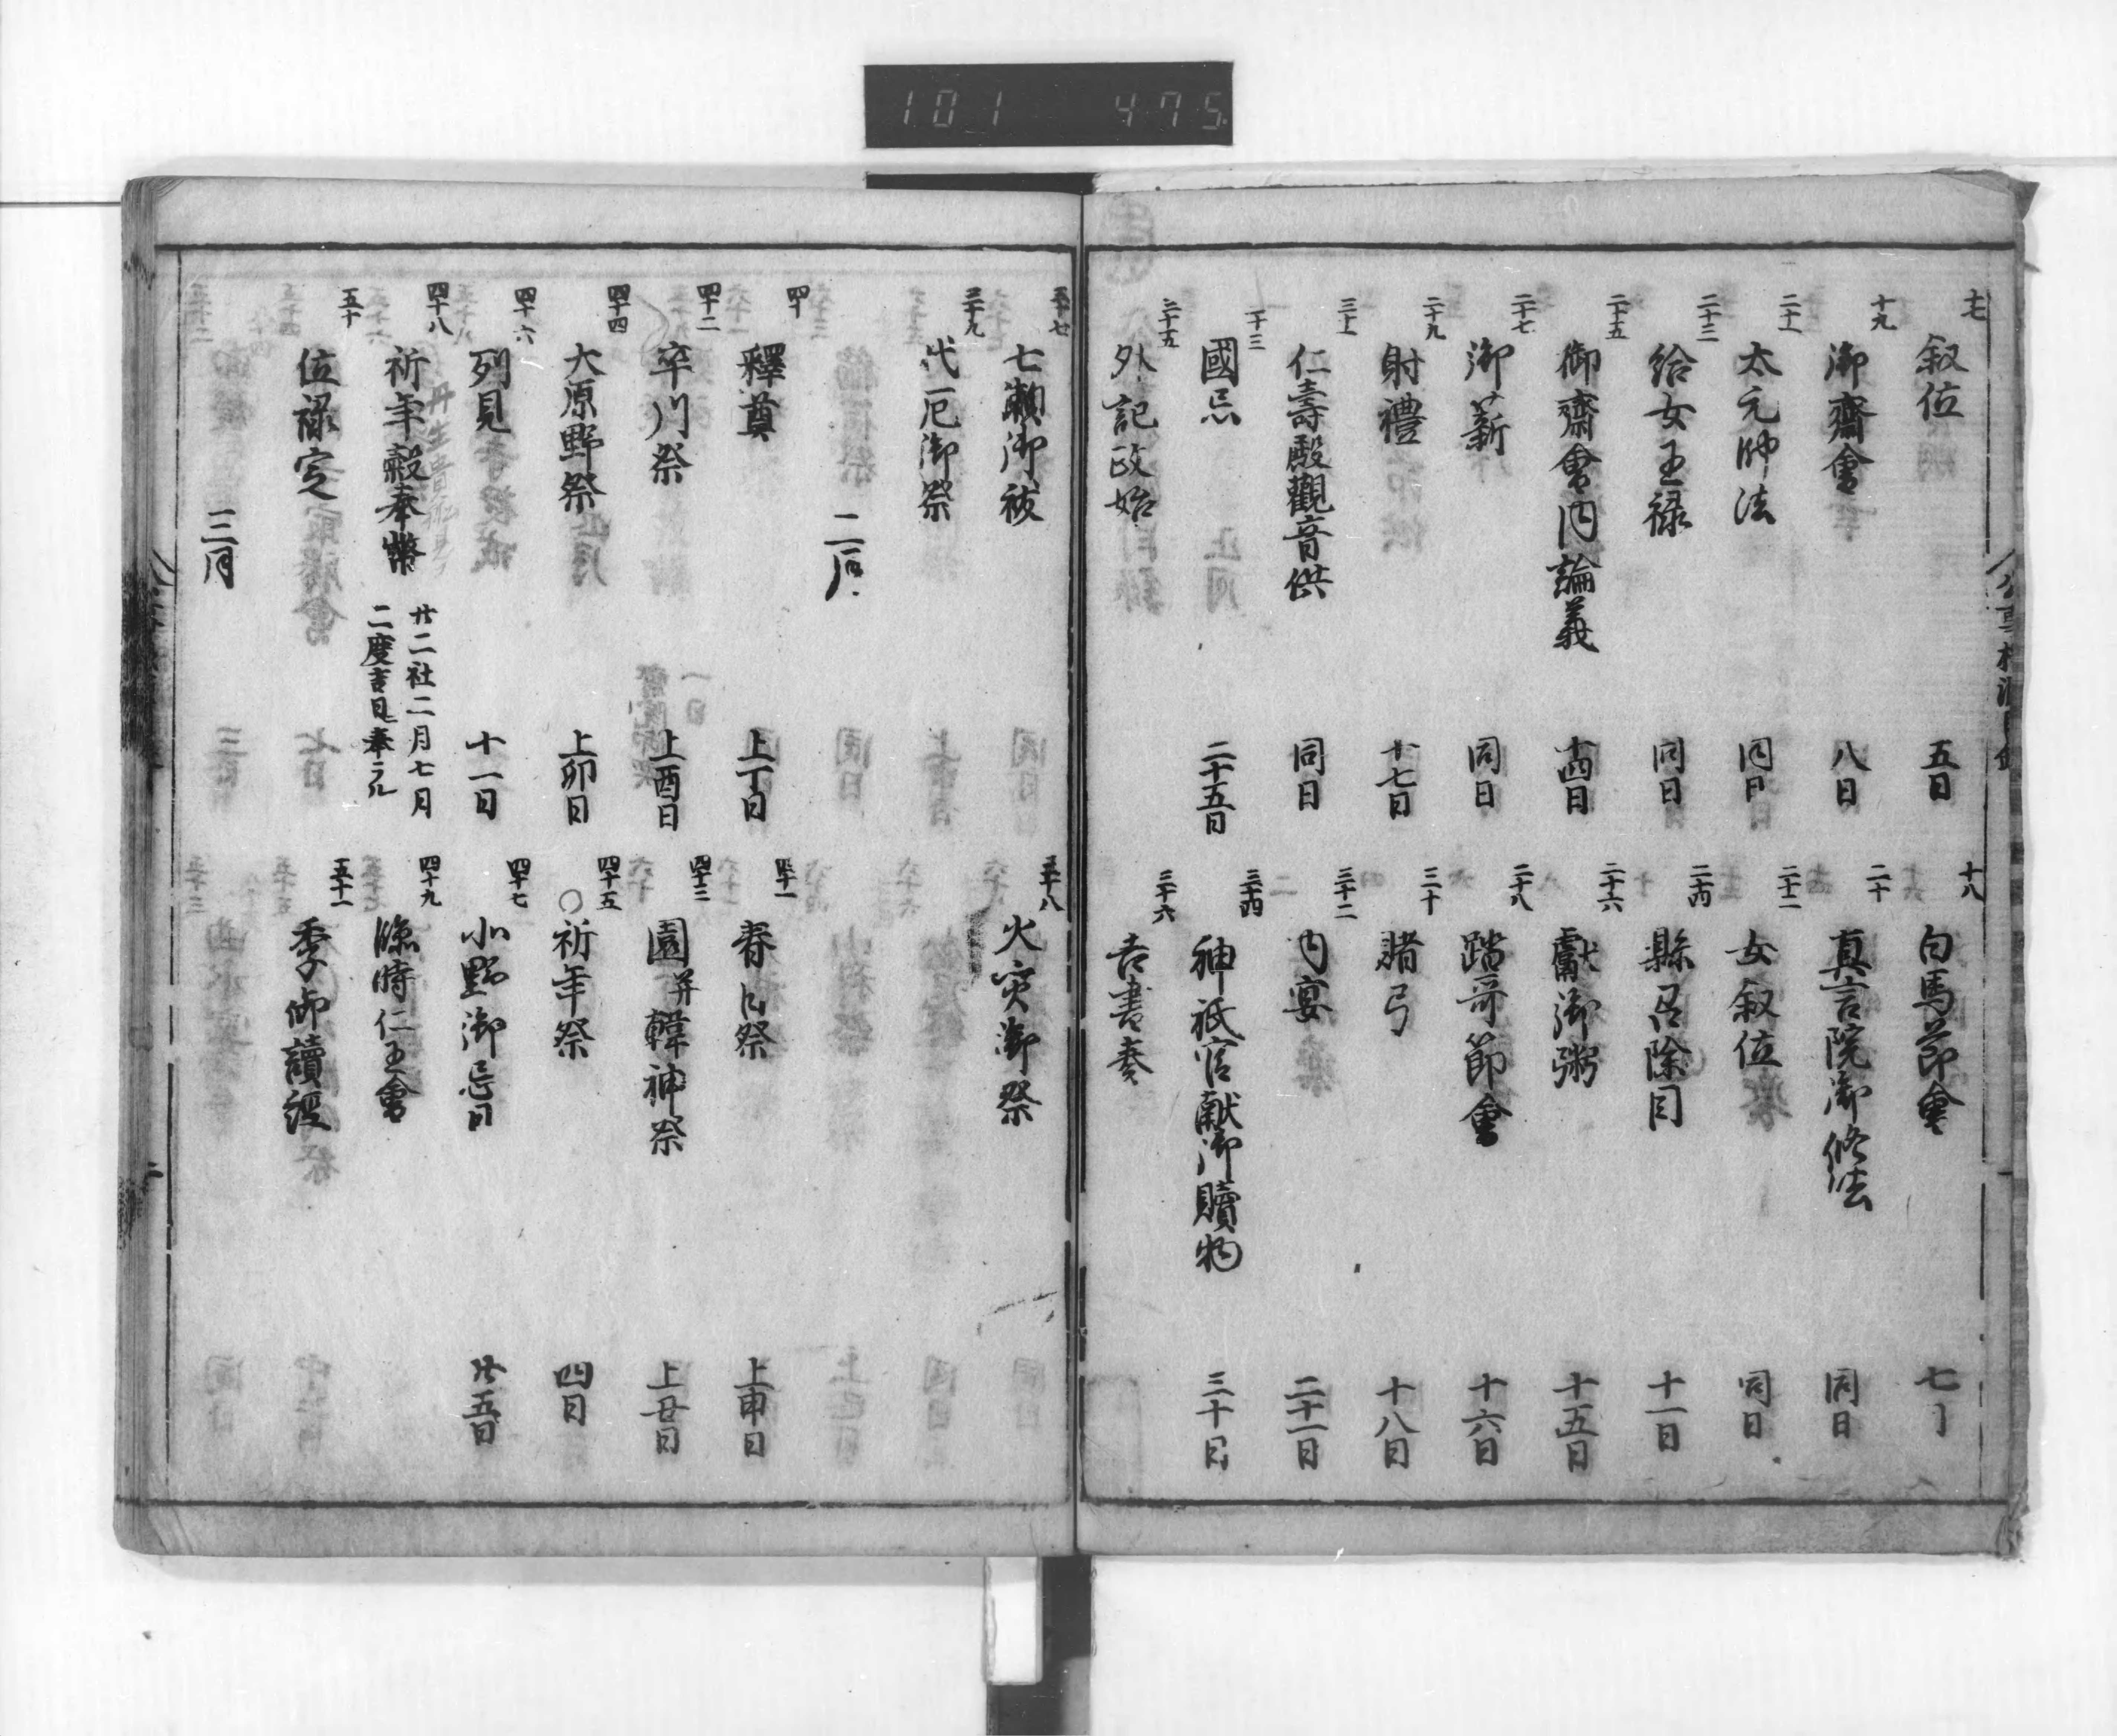 101 475
十七 叙位 五日
十八 白馬節會 七日
十九 御齋會 八日
二十 真言院御修法 同日
二十一 太元帥法 同日
二十二 女叙位 同日
二十三 給女王禄 同日
二十四 縣召除目 十一日
二十五 御齋會内論義 十四日
二十六 獻御粥 十五日
二十七 御薪 同日
二十八 踏哥節會 十六日
二十九 射禮 十七日
三十 賭弓 十八日
三十一 仁壽殿觀音供 同日
三十二 内宴 二十一日
三十三 國忌 二十五日
三十四 神祇官献御贖物 三十日
三十五 外記政始
三十六 吉書奏
三十七 七瀬御祓
三十八 火灾御祭
三十九 代厄御祭
二月
四十 釋奠 上丁日
四十一 春日祭 上申日
四十二 率川祭 上酉日
四十三 園并韓神祭 上丑日
四十四 大原野祭 上卯日
四十五 ○祈年祭 四日
四十六 列見 十一日
四十七 小野御忌日 廿五日
四十八 祈年穀奉幣 廿二社二月七月
二度吉日奉
四十九 臨時仁王會
五十 位禄定
五十一 季御讀経
三月
二